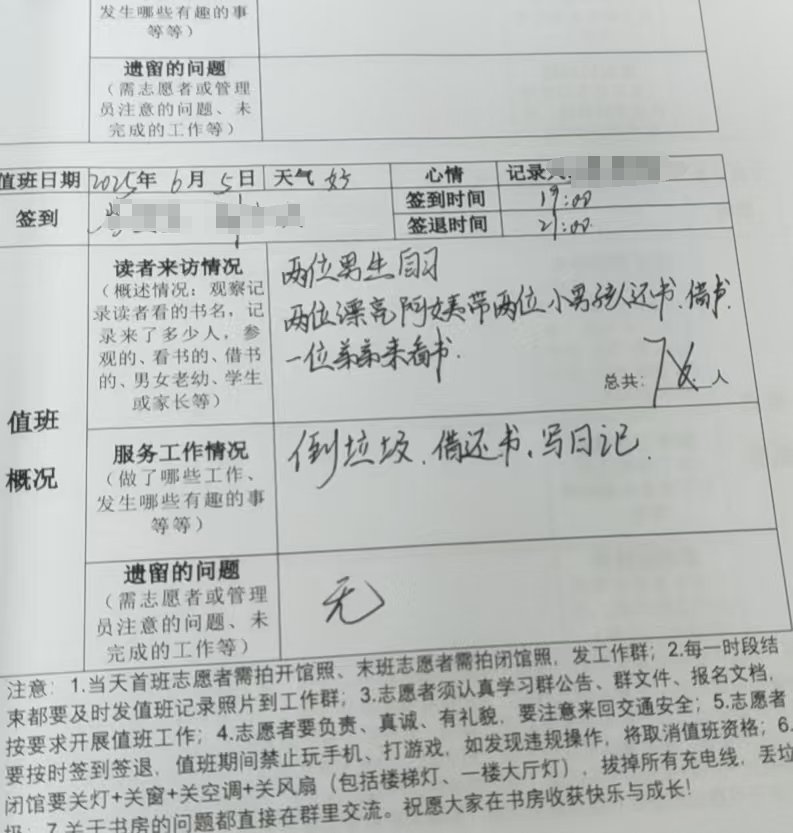 发生哪些有趣的事
等等）
遗留的问题
（需志愿者或管理
员注意的问题、未
完成的工作等）
值班日期 2025年 6月 5日 天气 好 心情 记录人:
签到 签到时间 19:00
签退时间 21:00
值班
概况
读者来访情况
（概述情况：观察记
录读者看的书名，记
录来了多少人，参
观的、看书的、借书
的、男女老幼、学生
或家长等）
两位男生自习
两位漂亮阿姨带两位小男孩还书、借书.
一位弟弟来看书.
总共: 7 人
服务工作情况
（做了哪些工作、
发生哪些有趣的事
等等）
倒垃圾、借还书、写日记.
遗留的问题
（需志愿者或管理
员注意的问题、未
完成的工作等）
无
注意：1.当天首班志愿者需拍开馆照、末班志愿者需拍闭馆照，发工作群；2.每一时段结
束都要及时发值班记录照片到工作群；3.志愿者须认真学习群公告、群文件、报名文档，
按要求开展值班工作；4.志愿者要负责、真诚、有礼貌，要注意来回交通安全；5.志愿者
要按时签到签退，值班期间禁止玩手机、打游戏，如发现违规操作，将取消值班资格；6.
闭馆要关灯+关窗+关空调+关风扇（包括楼梯灯、一楼大厅灯），拔掉所有充电线，丢垃
圾；7.关于书房的问题都直接在群里交流。祝愿大家在书房收获快乐与成长！